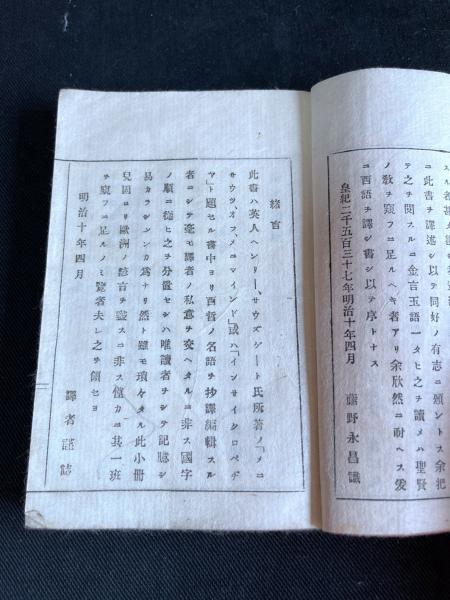 スル名甚
ニ此書ヲ譯述シ以テ同好ノ有志ニ頒ントス余把
テ之ヲ閲スルニ金言玉語一タヒ之ヲ讀メハ聖賢
ノ敎ヲ窺フニ足ルヘキ者アリ余欣然ニ耐ヘス爰
ニ西語ヲ譯シ書シ以テ序トナス
皇紀二千五百三十七年明治十年四月
藤野永昌識
緒言
此書ハ英人ヘンリー、サウズゲート氏所著ノ「メニ
サウツオフ、メニマインド」或ハ「インサイクロペヂ
ヤ」ト題セル書中ヨリ西哲ノ名語ヲ抄譯編輯スル
者ニシテ毫モ譯者ノ私意ヲ交ヘタルニ非ス國字
ノ順ニ從ヒ之ヲ分置セシハ唯讀者ヲシテ記臆シ
易カラシンカ爲ナリ然ト雖モ瑣々タル此小册
兒固ヨリ歐洲ノ諺言ヲ盡スニ非ス僅カニ其一班
ヲ窺フニ足ルノミ覽者夫レ之ヲ領セヨ
明治十年四月
譯者謹誌